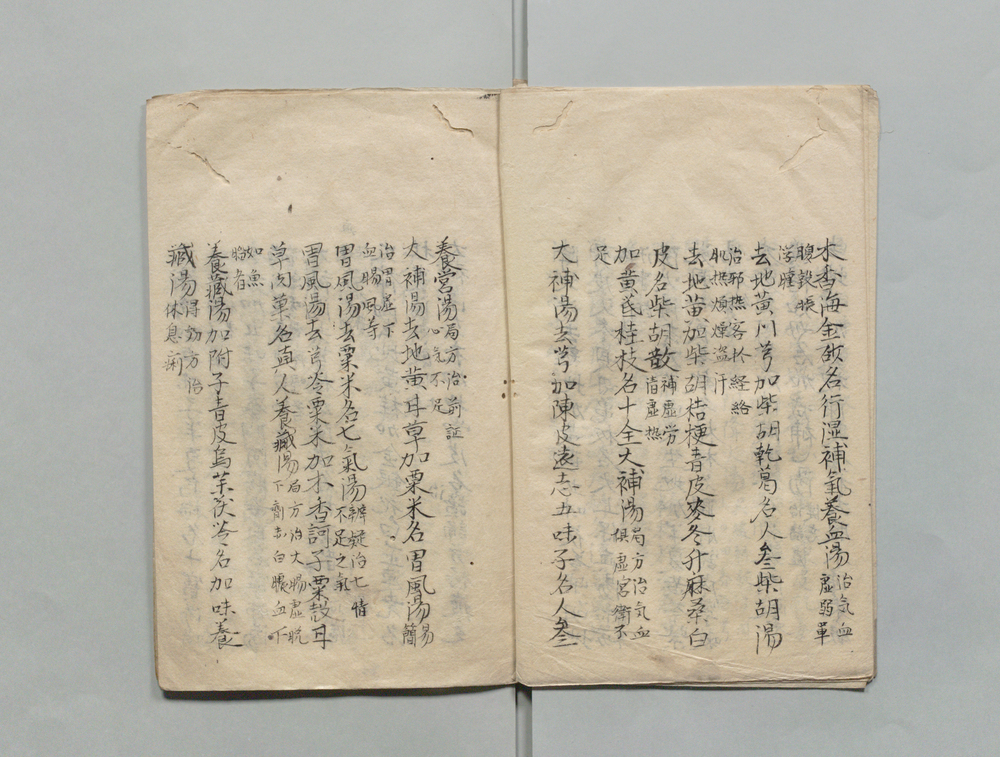 木香海金砂名行湿補氣養血湯治氣血虛弱單
腹鼓脹
浮腫
去地黃川芎加柴胡乾葛名人叅柴胡湯
治邪热客於経絡
肌热煩燥盗汗
去地黃加柴胡桔梗青皮麥冬升麻桑白
皮名柴胡散補虛労皆虛热
加黃芪桂枝名十全大補湯局方治氣血俱虛宮衛不
足
大補湯去芎加陳皮遠志五味子名人叅
養営湯局方治前証心氣不足
大補湯去地黃甘草加粟米名胃風湯易簡
治胃虛下
血腸風等
胃風湯去粟米名七氣湯辨疑治七情不足之氣
胃風湯去芎苓粟米加木香訶子粟殼甘
草肉菓名真人養臓湯局方治大腸虛脫下劑赤白膿血下
如魚
腦者
養臓湯加附子青皮烏茱茯苓名加味養
臓湯得効方治休息痢